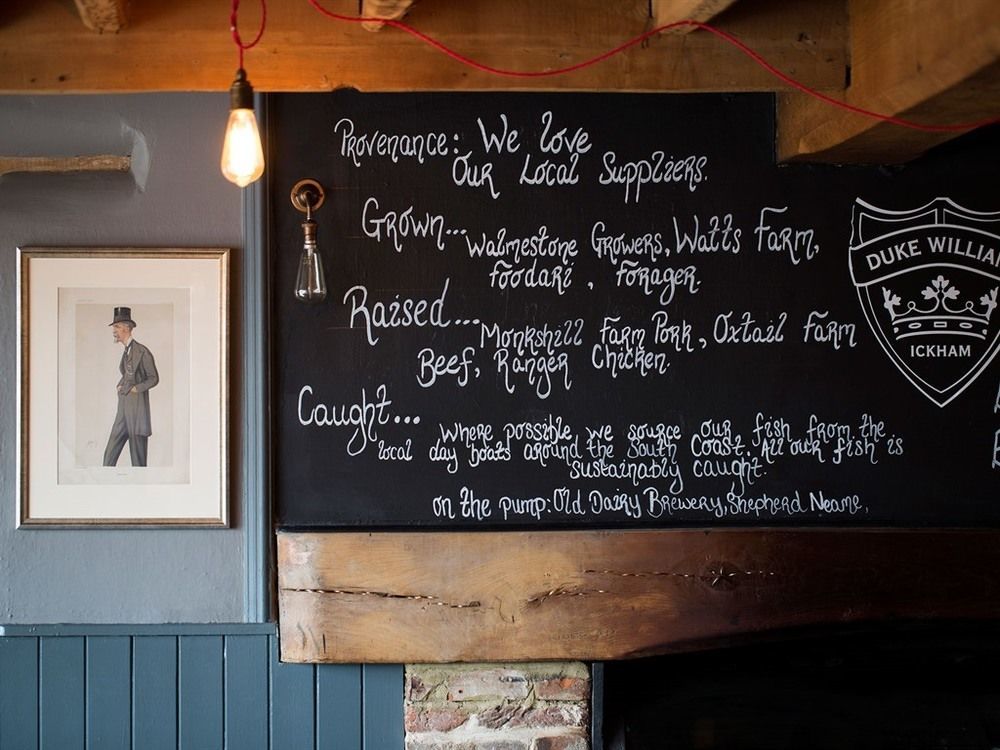 Provenance: We love
Our Local Suppliers.
Grown... Walmestone Growers, Watts Farm,
foodari, Forager.
Raised... Monkshill Farm Pork, Oxtail Farm
Beef, Ranger Chicken.
Caught... Where possible we source our fish from the
local day boats around the South Coast. All our fish is
sustainably caught.
on the pump: Old Dairy Brewery, Shepherd Neame,
DUKE WILLIA
ICKHAM